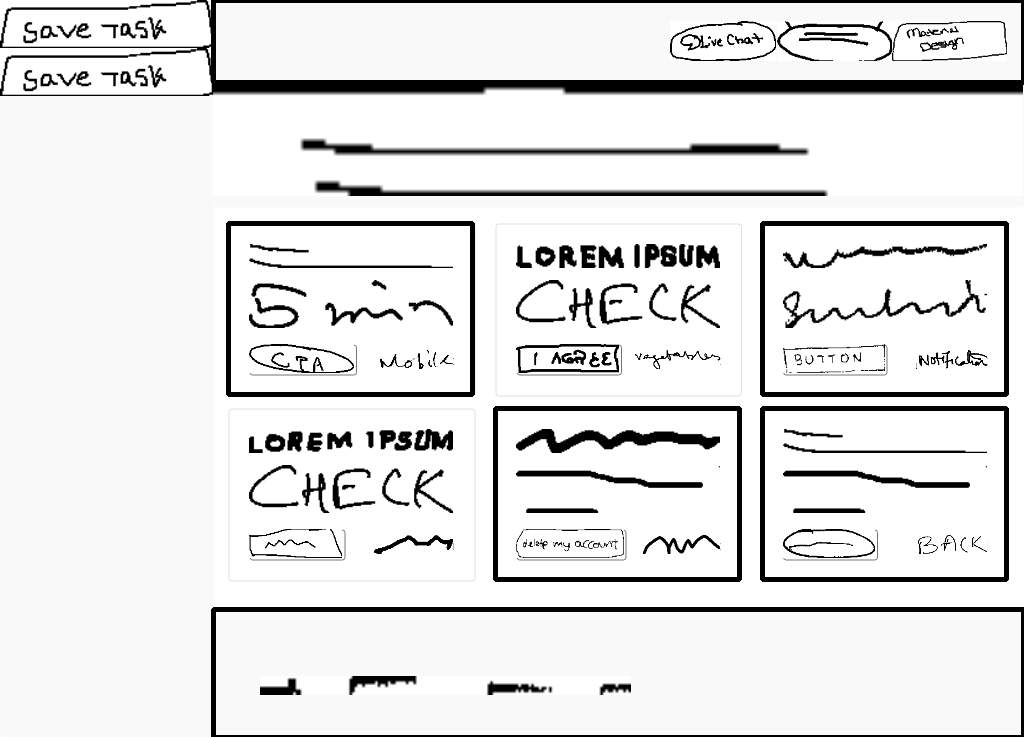 Save Task
Save Task
Live Chat
Material Design
5 min
CTA Mobile
LOREM IPSUM
CHECK
I AGREE vegetables
Submit
BUTTON Notification
LOREM IPSUM
CHECK
delete my account
BACK